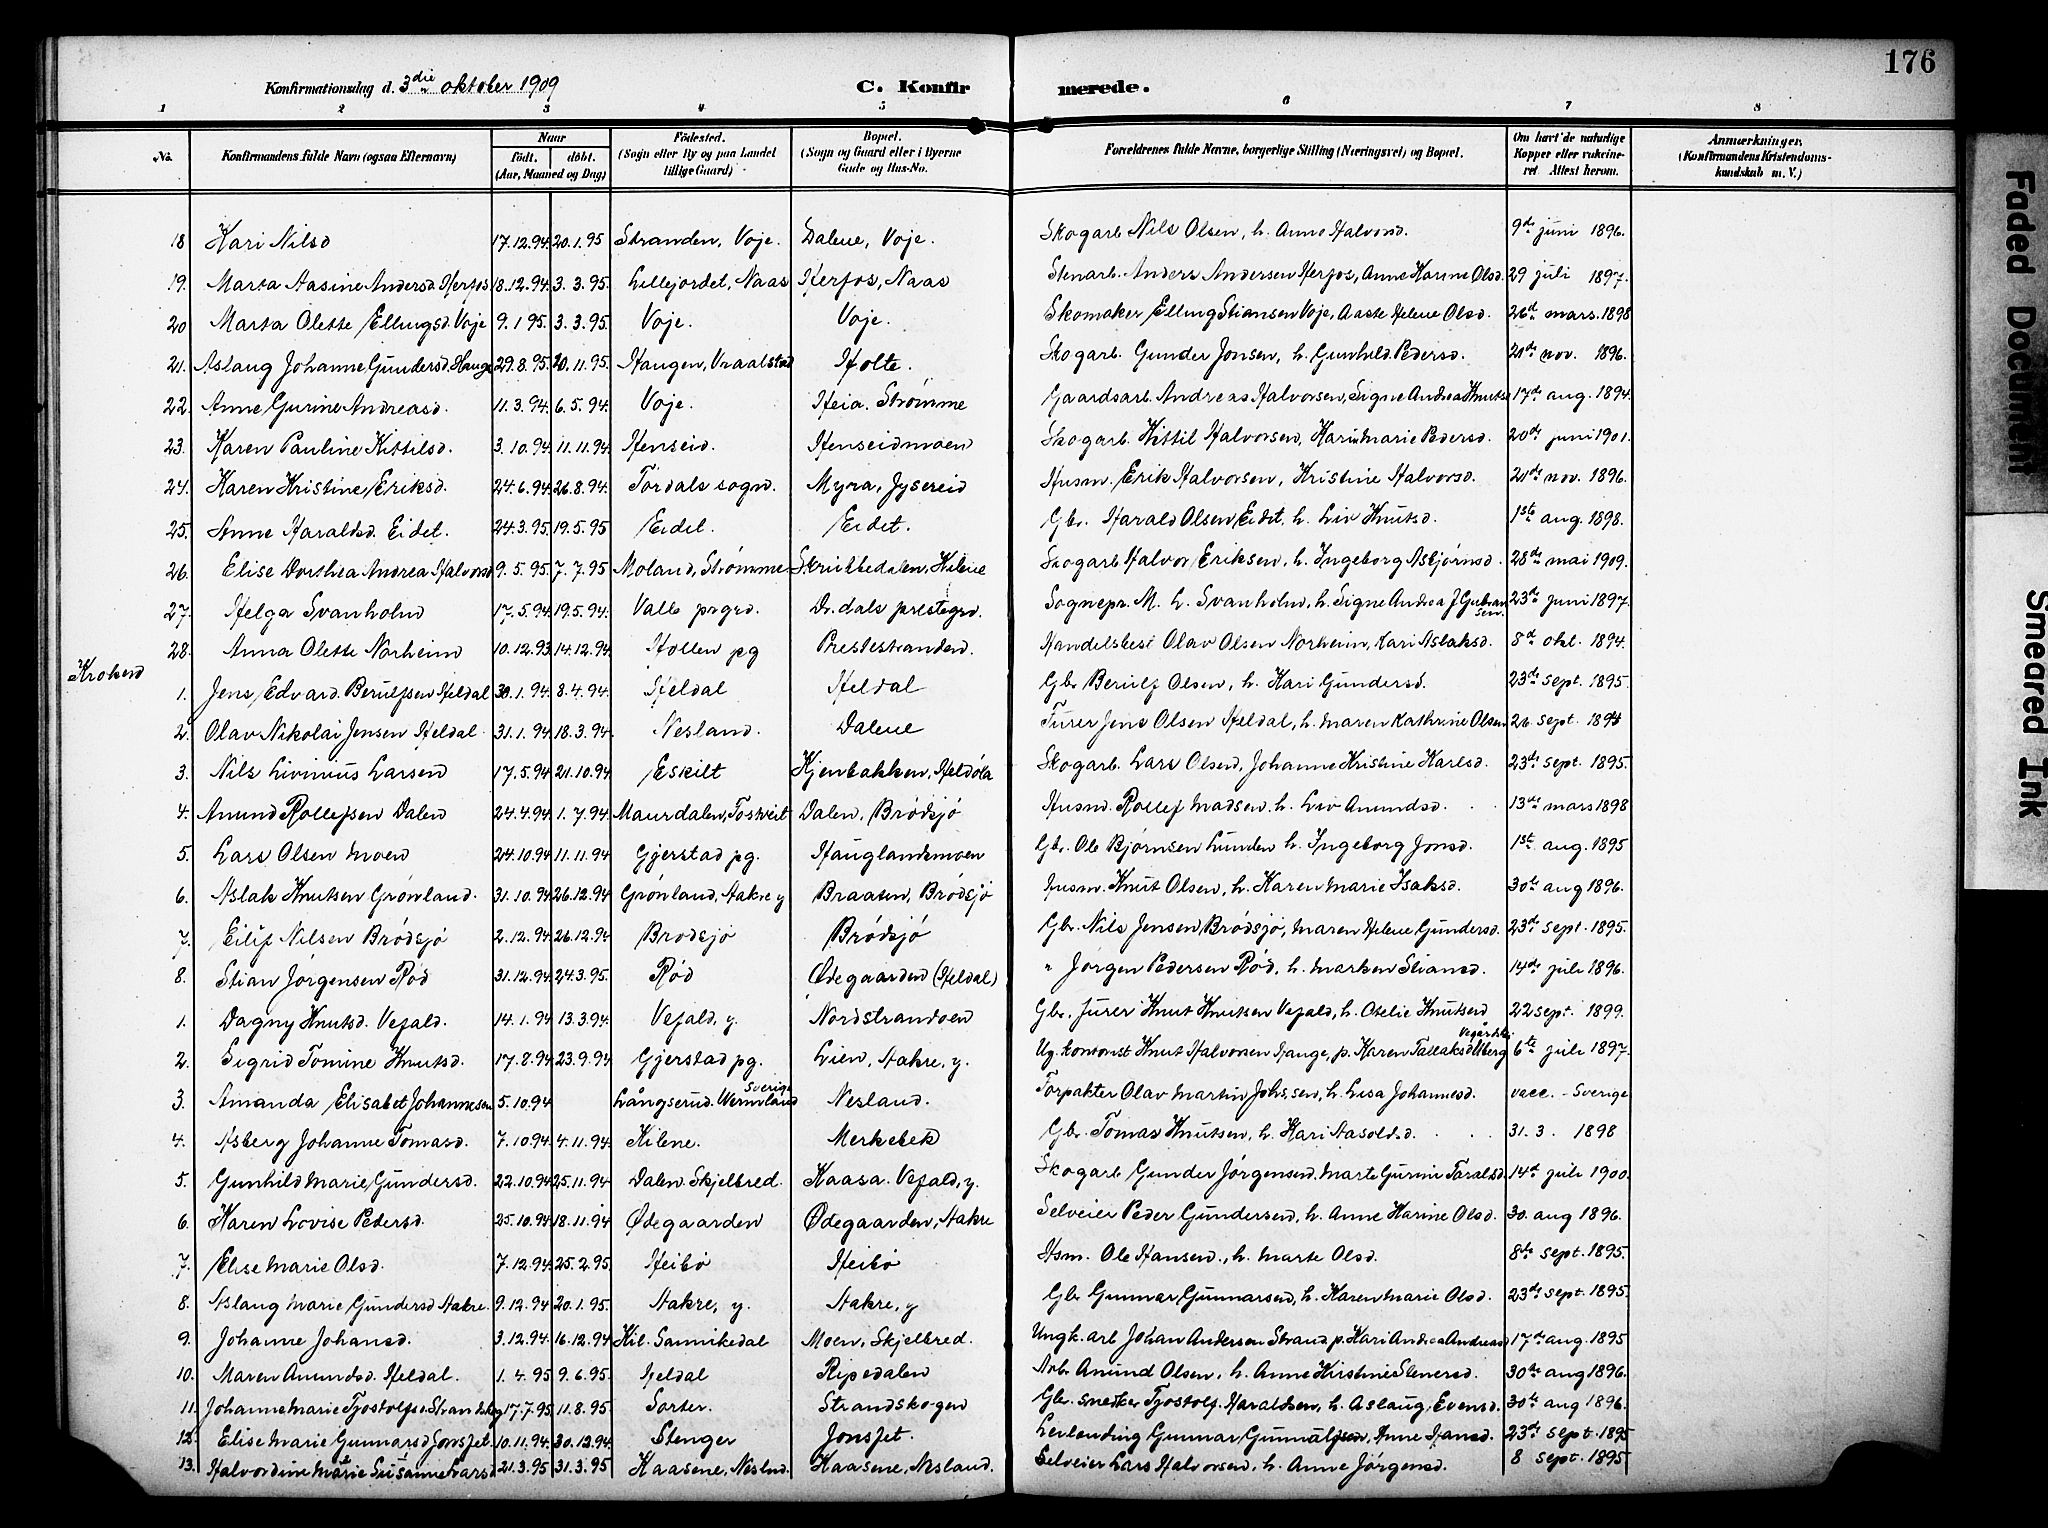 176
Konfirmationsdag d. 3die oktober 1909 C. Konfirmerede.
1 2 3 4 5 6 7 8
No. Konfirmandens fulde Navn (ogsaa Efternavn) Naar født. døbt. (Aar, Maaned og Dag) Fødested. (Sogn eller By og paa Landet tillige Gaard) Bopæl. (Sogn og Gaard eller i Byerne Gade og Hus-No. Forældrenes fulde Navne, borgerlige Stilling (Næringsvei) og Bopæl. Om havt de naturlige Kopper eller vaccineret Attest herom. Anmærkninger. (Konfirmandens Kristendomskundskab m. V.)
18 Kari Nilsd 17.12.94. 20.1.95 Stranden, Voje. Dalene, Voje. Skogarb. Nils Olsen, h. Anne Halvorsd. 9de juni 1896.
19. Marta Aasine Andersd Herfos 18.12.94. 3.3.95. Lillejordet, Naas Herfos, Naas Stenarb. Anders Andersen Herfos, Anne Karine Olsd. 29 juli 1897.
20 Marta Olette Ellingsd. Voje 9.1.95. 3.3.95. Voje. Voje. Skomaker Elling Stiansen Voje, Aaste Helene Olsd. 26de mars. 1898
21. Aslaug Johanne Gundersd. Hauge 29.8.95. 20.11.95. Haugen, Vraalstad Holte. Skogarb. Gunder Jonsen, h. Gunhild Pedersd. 21de nov. 1896.
22. Anne Gurine Andreasd. 11.3.94. 6.5.94. Voje. Heia. Strømme Gaardsarb. Andreas Halvorsen, Signe Andrea Knutsd 17de aug. 1894.
23. Karen Pauline Kittilsd. 3.10.94. 11.11.94. Henseid. Henseidmoen Skogarb. Kittil Halvorsen, Kari Marie Pedersd. 20de juni 1901.
24. Karen Kristine Eriksd. 24.6.94. 26.8.94. Tørdals sogn. Myra, Jysereid Husm. Erik Halvorsen, Kristine Halvorsd. 21de nov. 1896.
25. Anne Haraldsd. Eidet. 24.3.95. 19.5.95 Eidet. Eidet. Gbr. Harald Olsen Eidet, h. Liv Knutsd. 1ste aug. 1898.
26. Elise Dorthea Andrea Halvorsd 9.5.95. 7.7.95 Moland, Strømme Skrikkedalen, Kilene Skogarb Halvor Eriksen, h. Ingeborg Asbjørnsd. 28de mai 1909.
27. Helga Svanholm 17.5.94. 19.5.94. Valle prgrd. Dr.dals prestegrd. Sognepr. M. L. Svanholm, h. Signe Andrea J Gulbransen. 23de juni 1897.
28. Anna Olette Norheim 10.12.93 14.12.94. Hollen pg Prestestranden. Handelsbest Olav Olsen Norheim, Kari Aslaksd. 8de okt. 1894.
Krokend
1. Jens Edvard Berulfsen Heldal 30.1.94. 8.4.94. Heldal Heldal Gbr Berulf Olsen, h. Kari Gundersd. 23de sept. 1895.
2. Olav Nikolai Jensen Heldal 31.1.94 18.3.94. Nesland. Dalene Furer Jens Olsen Heldal, h. Maren Kathrine Olsen 26. sept. 1894
3. Nils Livinius Larsen 17.5.94 21.10.94 Eskilt Kjenbakken, Heldøla Skogarb. Lars Olsen, Johanne Kristine Karlsd. 23de sept. 1895.
4. Anund Rollefsen Dalen 24.4.94 1.7.94 Maurdalen, Tostveit Dalen, Brødsjø Husm. Rollef Madsen. h. Liv Anundsd. 13de mars 1898
5. Lars Olsen Moen 24.10.94 11.11.94 Gjerstad pg. Hauglandsmoen Gbr. Ole Bjørnsen Lunden h. Ingeborg Jonsd. 1ste aug. 1895
6. Aslak Knutsen Grønland. 31.10.94 26.12.94 Grønland, Aakre y Braaten, Brødsjø Husm. Knut Olsen, h. Karen Marie Isaksd. 30te aug 1896.
7. Eilif Nilsen Brødsjø 2.12.94. 26.12.94 Brødsjø Brødsjø Gbr. Nils Jensen Brødsjø, Maren Helene Gundersd. 23de sept. 1895.
8. Stian Jørgensen Rød 31.12.94 24.3.95. Rød Ødegaarden (Heldal) " Jørgen Pedersen Rød, h. Marken Stiansd. 14de juli 1896.
1. Dagny Knutsd. Vefald. 14.1.94 13.3.94. Vefald, y. Nordstrandoen Gbr. furer Knut Knutsen Vefald, h. Otelie Knutsend 22 sept. 1899.
2. Sigrid Tomine Knutsd. 17.8.94 23.9.94 Gjerstad pg. Lien, Aakre, y. Ug. kontorist Knut Halvorsen Hauge, p. Karen Tallaksd Vegårdshei 6te juli 1897.
3. Amanda Elisabet Johannesen 5.10.94 Långserud. Wermland Sverige Nesland. Forpakter Olav Martin Johs.sen, h. Lisa Johannesd. vacc. - Sverige
4. Asberg Johanne Tomasd. 7.10.94. 4.11.94. Kilene. Merkebek Gbr. Tomas Knutsen, h. Kari Aasoldsd. 31.3. 1898
5. Gunhild Marie Gundersd. 22.10.94 25.11.94 Dalen Skjelbred. Kaasa. Vefald, y. Skogarb Gunder Jørgensen, Marte Gurine Taralsd. 14de juli 1900.
6. Karen Lovise Pedersd. 25.10.94 18.11.94 Ødegaarden Ødegaarden, Aakre Selveier Peder Gundersen, h. Anne Karine Olsd. 30. aug 1896.
7. Elise Marie Olsd. 7.12.94. 25.2.95. Heibø Heibø Hsm. Ole Hansen, h. Marte Olsd. 8de sept. 1895.
8. Aslaug Marie Gundersd Aakre. 9.12.94 20.1.95. Aakre, y. Aakre, y Gbr Gunnar Gunnarsen, h. Karen Marie Olsd. 23de sept. 1895.
9. Johanne Johansd. 3.12.94. 16.12.94 Kil. Sannikedal Moen, Skjelbred. Ungk. arb Johan Andersen Strand p. Kari Andrea Andreasd 17de aug. 1895
10. Maren Anundsd. Heldal. 1.4.95 9.6.95. Heldal Ripedalen Arb. Anund Olsen, h. Anne Kirstine Stenersd. 30te aug 1896.
11. Johanne Marie Tjostolfsd Strandskog 17.7.95 11.8.95. Sorter. Strandskogen Gbr. snekker Tjostolf Haraldsen, h. Aslaug Evensd. 30te aug 1896.
12. Elise Marie Gunnarsd Jonsjet. 10.11.94. 30.12.94. Stenger Jonsjet. Leilending Gunnar Gunnulfsen, Anne Hansd. 23de sept 1895
13. Halvordine Marie Susanne Larsd 21.3.95 31.3.95 Kaasene, Neslnd. Kaasene, Nesland. Selveier Lars Halvorsen, h. Anne Jørgensd. 8 sept. 1895
Faded Document
Smeared Ink